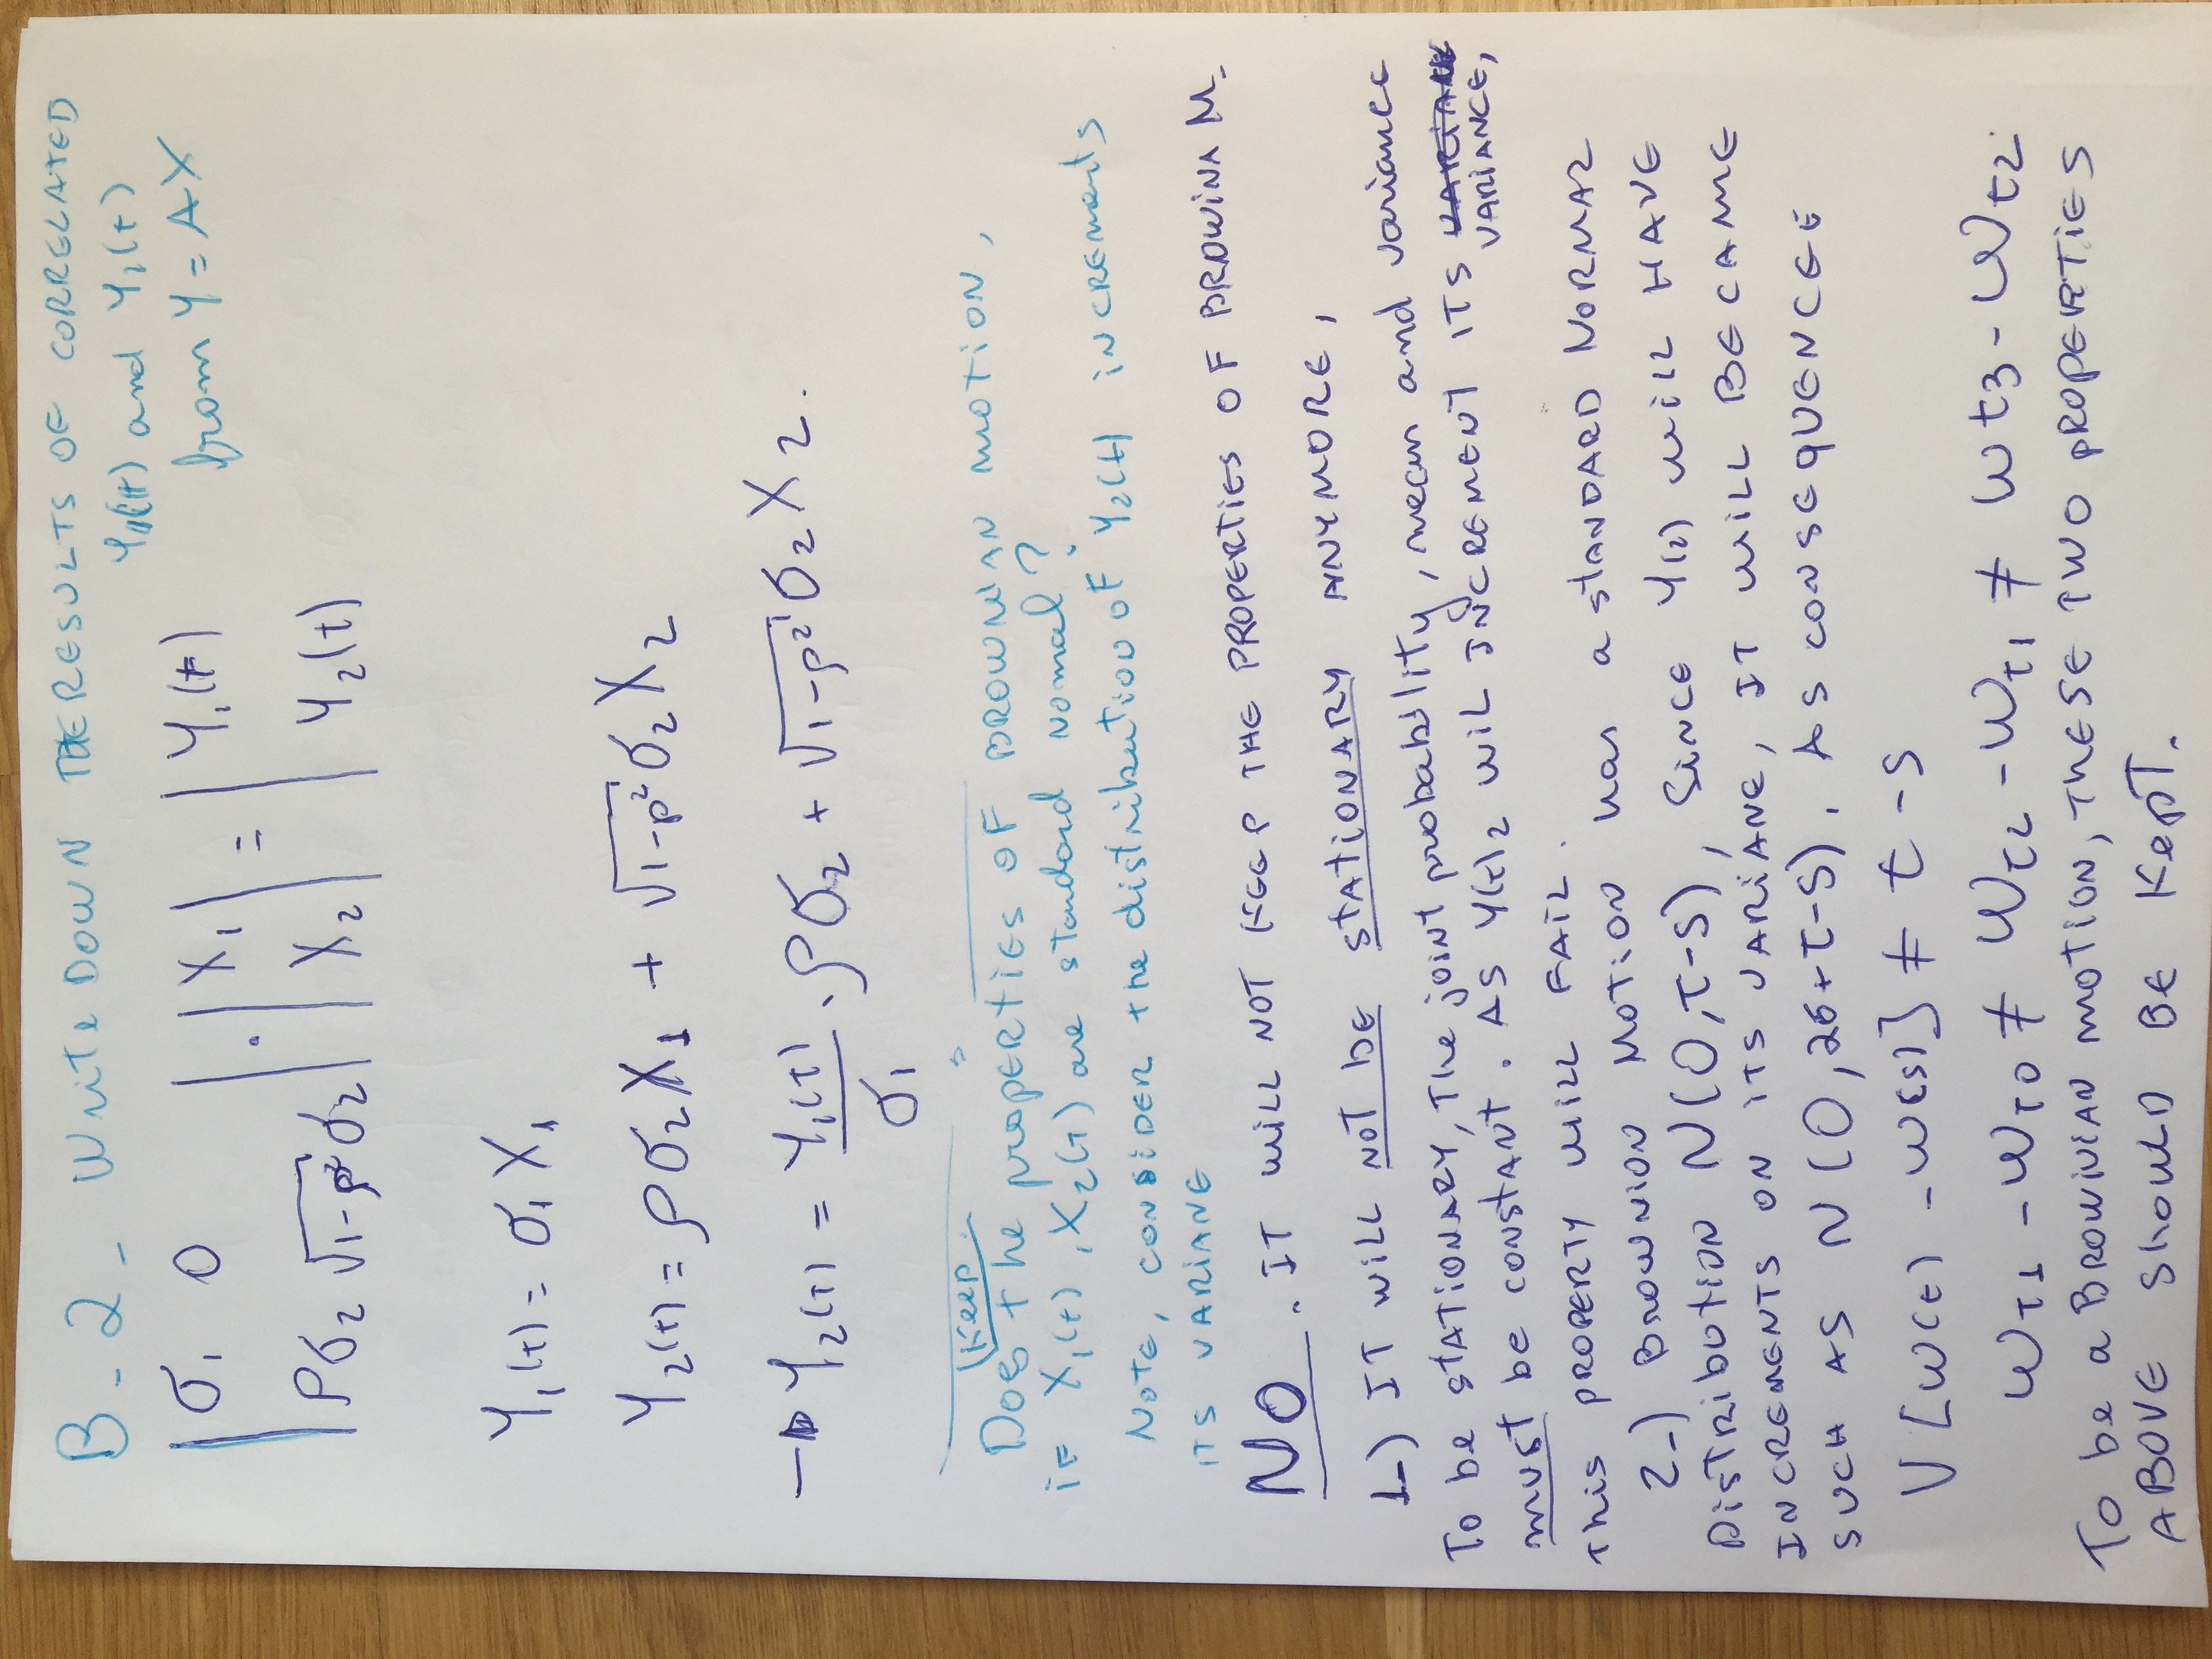 B-2- Write DOWN THE RESULTS OF CORRELATED
Y₁(t) and Y₂(t)
from Y = AX
| σ₁ 0 | | X₁ | | Y₁(t)
| ρσ₂ √1-ρ² σ₂ | · | X₂ | = | Y₂(t)
Y₁(t) = σ₁ X₁
Y₂(t) = ρσ₂X₁ + √1-ρ² σ₂X₂
→ Y₂(T) = Y₁(T)/σ₁ · ρσ₂ + √1-ρ² σ₂X₂.
Keep
Does the propERTIES OF BROWNIAN MOTION,
iF X₁(t), X₂(T) are standard Nomal?
NOTE, CONSIDER the distribution OF Y₂(t) INCREMENTS
ITS VARIANE
NO. IT WILL NOT KEEP THE PROPERTIES OF BROWINA M.
1-) IT WILL NOT BE STATIONARY ANYMORE,
To be STATIONARY, The joint probability, mean and variance
must be CONSTANT. AS Y(t)₂ WIL INCREMENT ITS VARIANCE,
This PROPERTY WILL FAIL.
2-) BROWNION MOTION has a STANDARD NORMAL
DISTRIBUTION N(0,T-S), SINCE Y(2) WILL HAVE
INCREMENTS ON ITS VARIANE, IT WILL BECAME
SUCH AS N(0,2σ+T-S). AS CONSEQUENCEE
V[W(t) - W(s)] ≠ t - s
WT1 - WT0 ≠ Wt2 - Wt1 ≠ Wt3 - Wt2
To be a BROWINIAN MOTION, THESE TWO PROPERTIES
ABOVE ShOULD BE KepT.